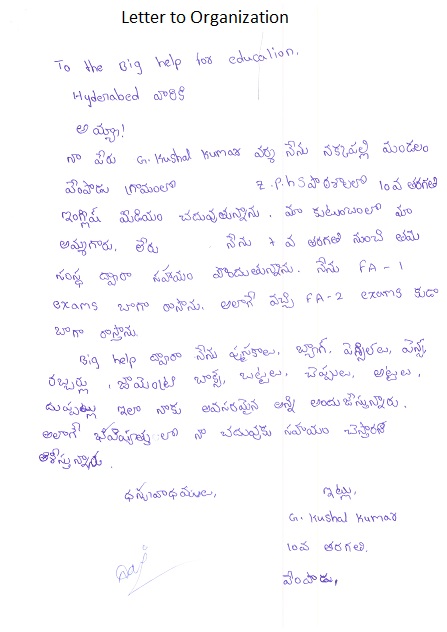 Letter to Organization
To the Big help for education.
Hyderabed వారికి
అయ్యా!
నా పేరు G. Kushal Kumar వర్మ నేను నక్కపల్లి మండలం
వేంపాడు గ్రామంలో Z.P.hS పాఠశాలలో 10వ తరగతి
ఇంగ్లీష్ మీడియం చదువుతున్నాను. మా కుటుంబంలో మా
అమ్మగారు. లేరు నేను 7 వ తరగతి నుంచి తమ
సంస్థ ద్వారా సహాయం పొందుతున్నాను. నేను FA-1
exams బాగా రాసాను. అలాగే వచ్చే FA-2 exams కుడా
బాగా రాస్తాను.
Big help ద్వారా నేను పుస్తకాలు, బ్యాగ్, పెన్సిలలు, పెన్స్,
రబ్బర్లు, జామెంట్రి బాక్స్, బట్టలు, చెప్పులు, అట్టలు,
దుప్పట్లు ఇలా నాకు అవసరమైన అన్ని అందుజేస్తున్నారు.
అలాగే భవిష్యత్తు లో నా చదువుకు సహాయం చేస్తారని
ఆశిస్తున్నాను.
ధన్యవాదములు,
ఇట్లు,
G. Kushal Kumar
10వ తరగతి.
వేంపాడు,